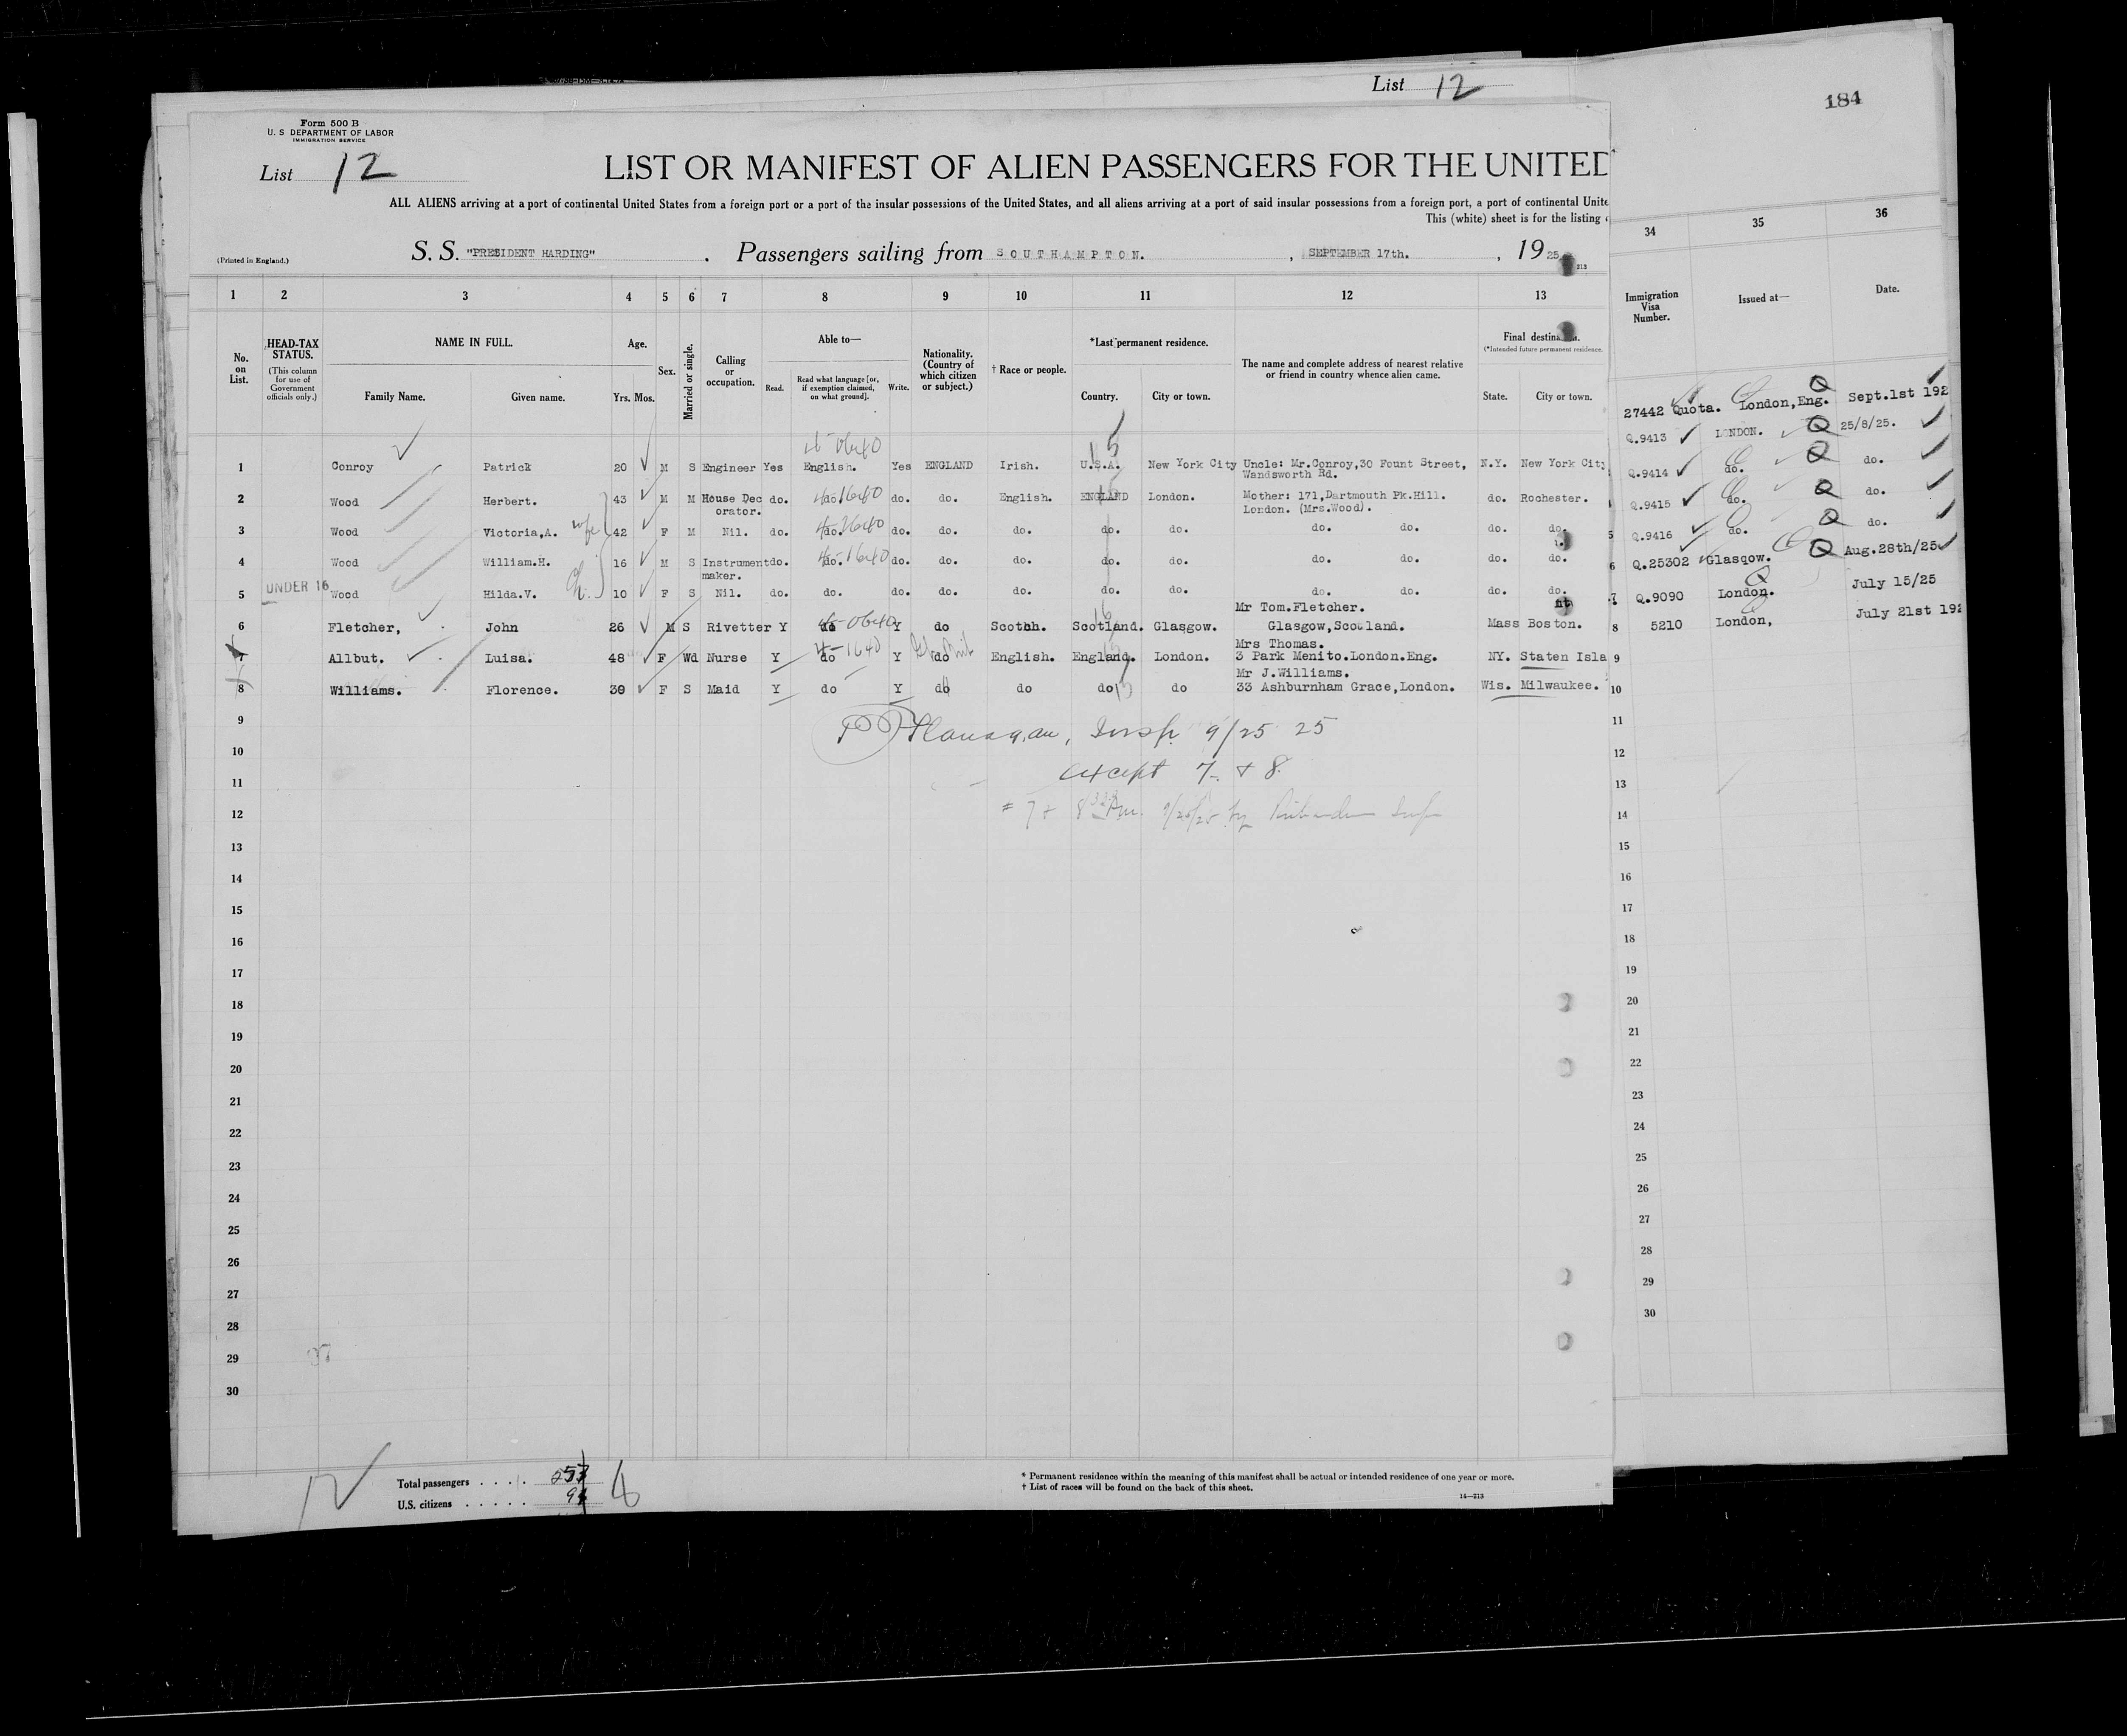 List 12
184
Form 500 B
U. S DEPARTMENT OF LABOR
IMMIGRATION SERVICE
List 12
LIST OR MANIFEST OF ALIEN PASSENGERS FOR THE UNITED
ALL ALIENS arriving at a port of continental United States from a foreign port or a port of the insular possessions of the United States, and all aliens arriving at a port of said insular possessions from a foreign port, a port of continental Unite
This (white) sheet is for the listing
(Printed in England.) S. S. "PRESIDENT HARDING" . Passengers sailing from SOUTHAMPTON. , SEPTEMBER 17th. , 19 25
1 2 3 4 5 6 7 8 9 10 11 12 13 34 35 36
No. on List.
HEAD-TAX STATUS.
(This column for use of Government officials only.)
NAME IN FULL.
Family Name. Given name.
Age.
Yrs. Mos.
Sex.
Married or single.
Calling or occupation.
Able to—
Read. Read what language [or, if exemption claimed, on what ground]. Write.
Nationality. (Country of which citizen or subject.)
† Race or people.
*Last permanent residence.
Country. City or town.
The name and complete address of nearest relative or friend in country whence alien came.
Final destina n.
(*Intended future permanent residence.
State. City or town.
Immigration Visa Number.
Issued at—
Date.
1 Conroy Patrick 20 M S Engineer Yes English. Yes ENGLAND Irish. U.S.A. New York City Uncle: Mr.Conroy,30 Fount Street, Wandsworth Rd. N.Y. New York City
2 Wood Herbert. 43 M M House Dec orator. do. do. do. do. English. ENGLAND London. Mother: 171,Dartmouth Pk.Hill. London. (Mrs.Wood). do. Rochester.
3 Wood Victoria,A. wife 42 F M Nil. do. do. do. do. do. do. do. do. do. do. do.
4 Wood William.H. 16 M S Instrument maker. do. do. do. do. do. do. do. do. do. do. do.
5 UNDER 16 Wood Hilda.V. 10 F S Nil. do. do. do. do. do. do. do. do. do. do. do.
6 Fletcher, John 26 M S Rivetter Y do Y do Scotch. Scotland. Glasgow. Mr Tom.Fletcher. Glasgow,Scotland. Mass Boston.
7 Allbut. Luisa. 48 F Wd Nurse Y do Y do English. England. London. Mrs Thomas. 3 Park Menito.London.Eng. NY. Staten Isla
8 Williams. Florence. 30 F S Maid Y do Y do do do do Mr J.Williams. 33 Ashburnham Grace,London. Wis. Milwaukee.
27442 Quota. London,Eng. Sept.1st 192
Q.9413 LONDON. 25/8/25.
Q.9414 do. do.
Q.9415 do. do.
5 Q.9416 do. do.
6 Q.25302 Glasgow. Aug.28th/25
7 Q.9090 London. July 15/25
8 5210 London, July 21st 192
9
10
9 Flanagan, Insp. 9/25 25 11
10 except 7 & 8. 12
11 13
12 14
13 15
14 16
15 17
16 18
17 19
18 20
19 21
20 22
21 23
22 24
23 25
24 26
25 27
26 28
27 29
28 30
29
30
Total passengers . . . .
U.S. citizens . . . . .
* Permanent residence within the meaning of this manifest shall be actual or intended residence of one year or more.
† List of races will be found on the back of this sheet.
14—213